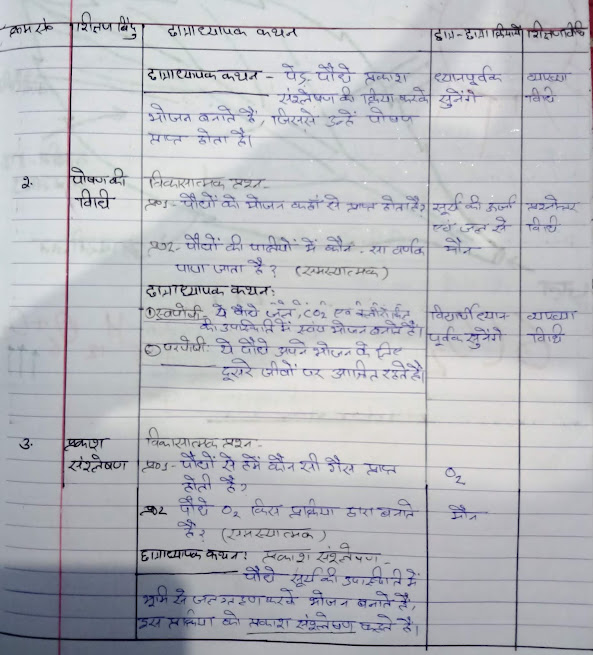 क्रम सं० शिक्षण बिंदु छात्राध्यापक कथन छात्र-छात्रा क्रियायें शिक्षण विधि
छात्राध्यापक कथन - पेड़ पौधे प्रकाश ध्यानपूर्वक व्याख्या
संश्लेषण की क्रिया करके सुनेंगे विधि
भोजन बनाते हैं, जिससे उन्हें पोषण
प्राप्त होता है।
2. पोषण की विकासात्मक प्रश्न-
विधि प्र01- पौधों को भोजन कहाँ से प्राप्त होता है? सूर्य की ऊर्जा प्रश्नोत्तर
एवं जल से विधि
प्र02- पौधों की पत्तियों में कौन-सा वर्णक मौन
पाया जाता है? (समस्यात्मक)
छात्राध्यापक कथन:
① स्वपोषी- ये पौधे जल, CO2 एवं विद्यार्थी ध्यान व्याख्या
की उपस्थिति में स्वयं भोजन बनाते हैं। पूर्वक सुनेंगे विधि
② परपोषी- ये पौधे अपने भोजन के लिए
दूसरे जीवों पर आश्रित रहते हैं।
3. प्रकाश विकासात्मक प्रश्न-
संश्लेषण प्र01- पौधों से हमें कौन सी गैस प्राप्त O2
होती है?
प्र02 पौधे O2 किस प्रक्रिया द्वारा बनाते मौन
है? (समस्यात्मक)
छात्राध्यापक कथन: प्रकाश संश्लेषण-
पौधे सूर्य की उपस्थिति में
भूमि से जल ग्रहण करके भोजन बनाते हैं,
इस प्रक्रिया को प्रकाश संश्लेषण कहते हैं।